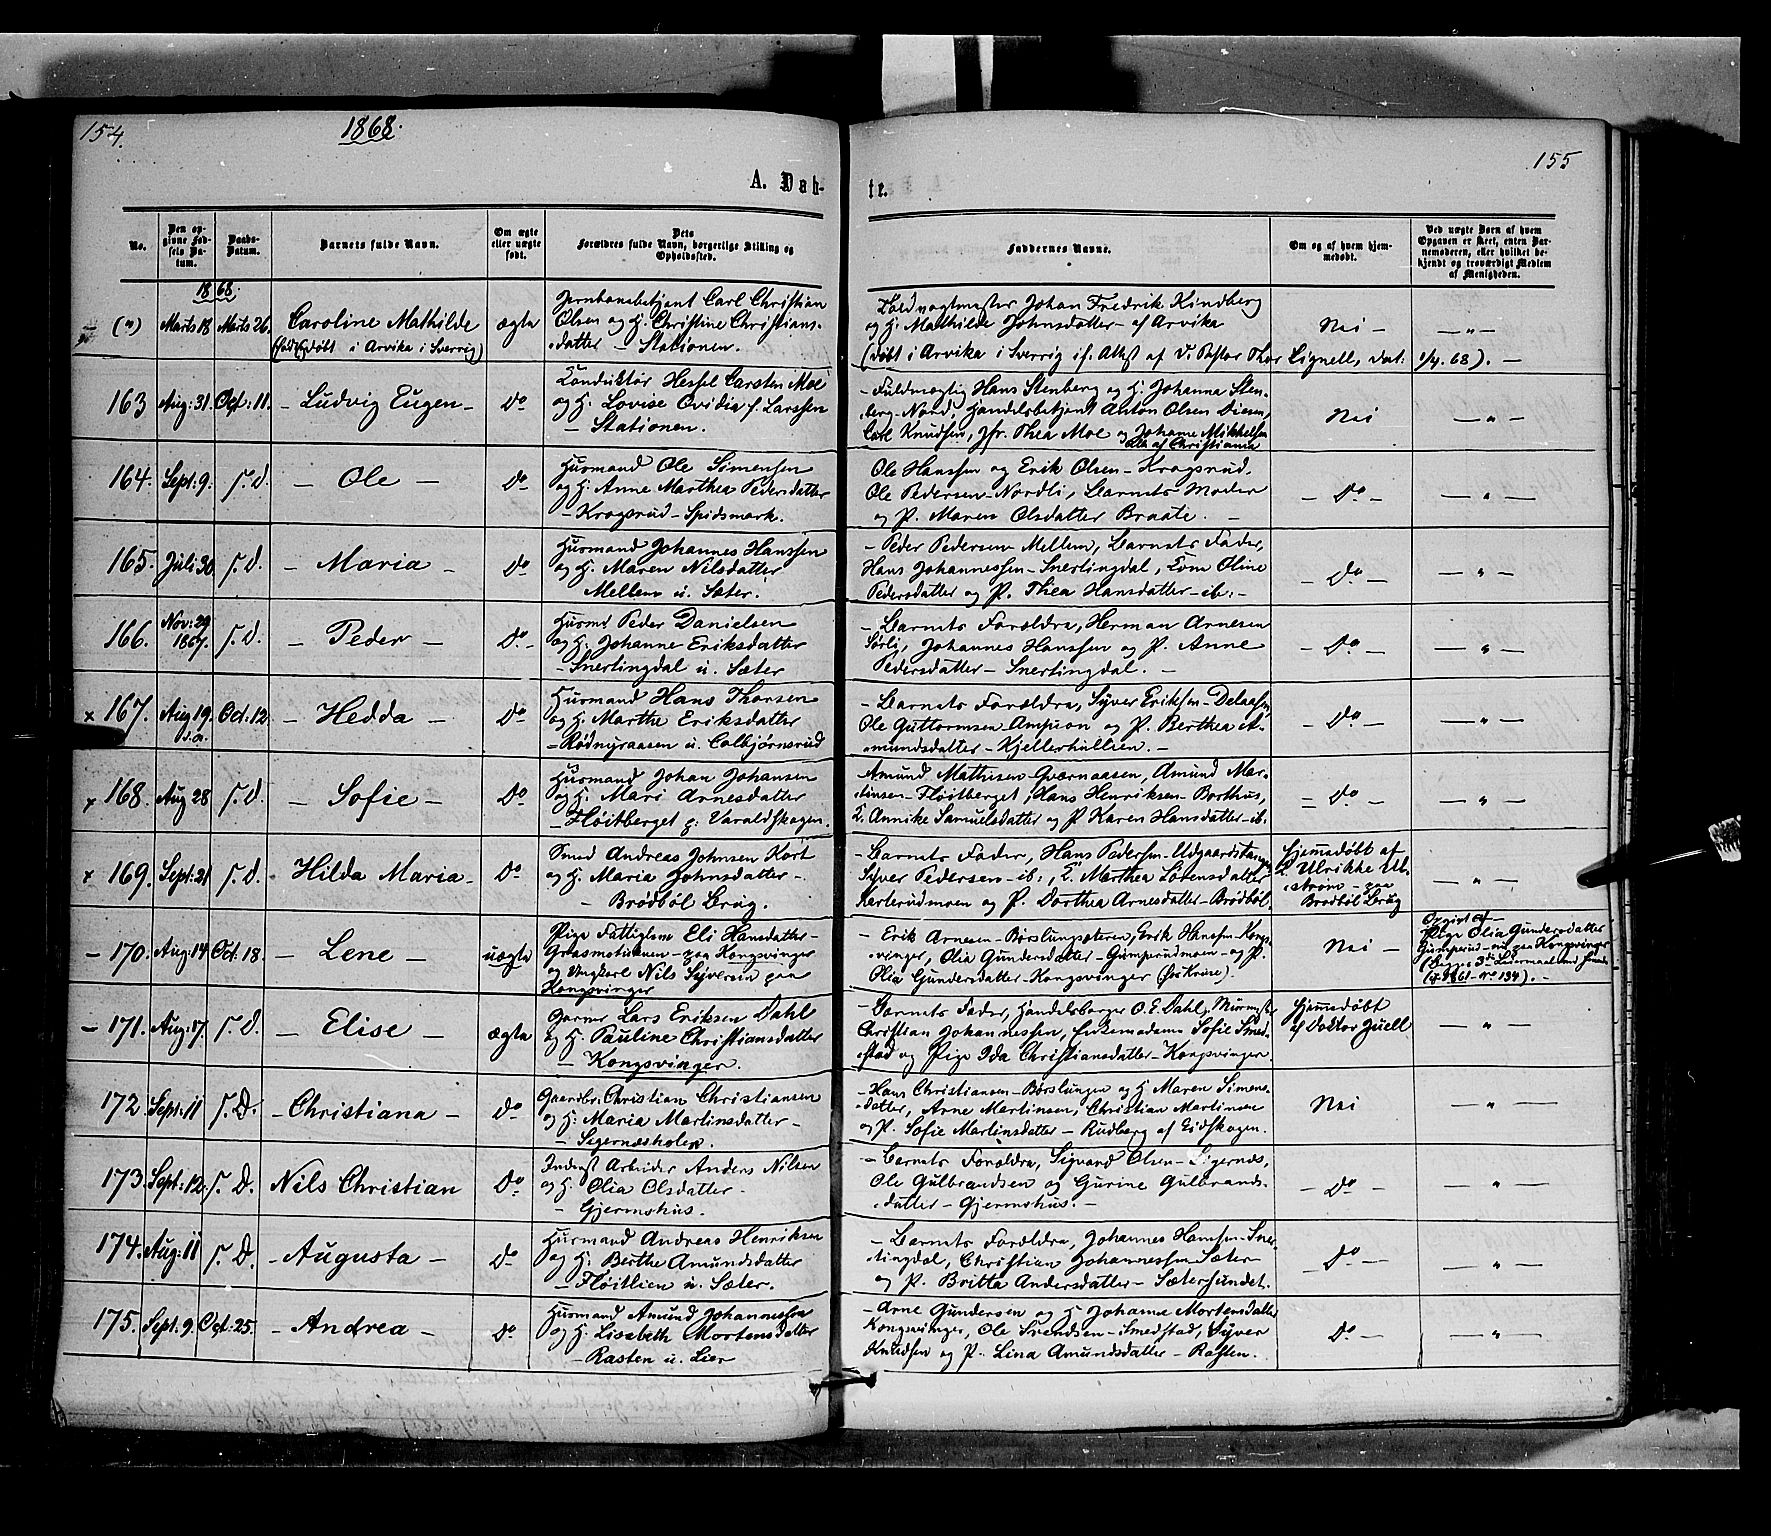 154.
1868.
155
A. Dåb-
te.
No.
Den opgivne Fødsels Datum.
Daabs-Datum.
Barnets fulde Navn.
Om ægte eller uægte født.
Dets Forældres fulde Navn, borgerlige Stilling og Opholdssted.
Faddernes Navne.
Om og af hvem hjemmedøbt.
Ved uægte Børn af hvem Opgaven er skeet, enten Barnemoderen, eller hvilket bekjendt og troværdigt Medlem af Menigheden.
1868.
(") Marts 18 Marts 26. Caroline Mathilde
(født og døbt i Arvika i Sverrig)
ægte
Jernbanebetjent Carl Christian
Olsen og H. Christine Christians-
datter – Stationen.
Mathilde Johnsdatter – af Arvika
Johan Fredrik Kindberg
(døbt i Arvika i Sverrig if. Attest af V. Pastor Thor Lignell, dat: 1/4. 68). –
Nei – – " –
163 Aug: 31. Oct: 11. – Ludvig Eugen – Do
Conduktør Hessel Carsten Moe
og H. Lovise Ovidia f. Larssen
– Stationen.
– Fuldmægtig Hans Stenberg og H. Johanna Sten-
berg – Nord, Handelsbetjent Anton Olsen Diesen,
Carl Knudsen, Jfr. Thea Moe og Johanne Mikkelsen
alle af Christiania
Nei – " –
164. Sept: 9. s. D. – Ole – Do
Husmand Ole Simensen
og H. Anne Marthea Pedersdatter
– Kragsrud – Spidsmark.
Ole Hanssen og Erik Olsen – Kragsrud.
Ole Pedersen – Nordli, Barnets Moder
og P. Maren Olsdatter Braate. –
– Do – – " –
165. Juli 30. s. D. – Maria – Do
Husmand Johannes Hanssen
og H. Maren Nilsdatter
Mellem u. Sæter.
– Peder Pedersen Mellem, Barnets Fader,
Hans Johannessen – Snertingdal, Kone Oline
Pedersdatter og P. Thea Hansdatter – ib: –
– Do – – " –
166. Nov: 29 1867. s. D. – Peder – Do. –
Husmd Peder Danielsen
og H. Johanne Eriksdatter
– Snertingdal u. Sæter
– Barnets Forældre, Herman Arnesen
Sørli, Johannes Hanssen og P. Anne
Pedersdatter – Snertingdal. –
– Do – – " –
x 167. Aug 19. s.a. Oct: 12 – Hedda – Do
Husmand Hans Thorsen
og H. Marthe Eriksdatter
– Rødnyraasen u. Colbjørnsrud
– Barnets Forældre, Syver Eriksen – Delaasen,
Ole Guttormsen Ampion og P. Berthea A-
mundsdatter – Kjellerhullien. –
– Do – – " –
x 168. Aug 28 s. D. – Sofie – Do
Husmand Johan Johansen
og H. Mari Arnesdatter
– Fløitberget p: Varaldskogen.
– Amund Mathisen Qværnaasen, Amund Mar-
tinsen – Fløitberget, Hans Henriksen – Borthus,
K. Annike Samuelsdatter og P Karen Hansdatter – ib.
– Do – – " –
x 169. Sept: 21 s. D. – Hilda Maria – Do
Smed Andreas Johnsen Kort
og H. Maria Johnsdatter –
– Brødbøl Brug.
– Barnets Fader, Hans Pedersen – Udgaardstange,
Syver Pedersen – ib:, K. Marthea Lorensdatter
Karterudmoen og P. Dorthea Arnesdatter – Brødbøl.
Hjemmedøbt af
K Ulrikke Ul-
strøm – paa
Brødbøl Brug
– " –
– 170. Aug: 14 Oct. 18 – Lene – uægte
Pige Fattiglem Eli Hansdatter –
Græsmostuen – paa Kongsvinger
og Ungkarl Nils Syversen paa
Kongsvinger
– Erik Arnesen – Børslungsæteren, Erik Hansen – Kongs-
vinger, Olia Gundersdatter – Gumperudmoen – og P.
Olia Gundersdatter – Kongsvinger (hos Kruse).
Nei –
Opgivet af –
Pige Olia Gundersdatter
Gumperud – nu paa Kongsvinger
– 171. Aug: 17. s. D. – Elise – ægte
Garver Lars Eriksen Dahl
og H. Pauline Christiansdatter
– Kongsvinger.
– Barnets Fader, Handelsborger O. E. Dahl, Murmester
Christian Johannessen, Enkemadame Sofie Smed-
stad og Pige Ida Christiansdatter – Kongsvinger
Hjemmedøbt
af Doktor Juell
– " –
172. Sept: 11 s. D. – Christiana – Do
Gaardbr. Christian Christiansen
og H: Maria Martinsdatter –
– Sigernæsholen.
– Hans Christiansen – Børslungen og H Maren Simens-
datter, Arne Martinsen, Christian Martinsen
og P. Sofie Martinsdatter – Rudberg af Eidskogen.
Nei – " –
173. Sept: 12. s. D. Nils Christian Do
Inderst Arbeider Anders Nilsen
og H. Olia Olsdatter –
– Gjermshus.
– Barnets Forældre, Sigvard Olsen – Sigernæs,
Ole Gulbrandsen og Gurine Gulbrands-
datter – Gjermshus. –
– Do – – " –
174. Aug: 11 s. D. – Augusta – Do
Husmand Andreas Henriksen
og H: Berthe Amundsdatter
– Fløitlien u. Sæter.
– Barnets Forældre, Johannes Hansen – Sner-
tingdal, Christian Johannessen Sæter
og P. Britta Andersdatter – Sætersundet.
– Do – – " –
175. Sept: 9. Oct: 25. – Andrea – Do
Husmand Amund Johannessen
og H. Lisabeth Mortensdatter
– Rasten u. Lier
– Arne Gundersen og H Johanne Mortensdatter
Kongsvinger, Ole Svendsen – Smedstad, Syver
Knudsen og P. Lina Amundsdatter – Rasten.
Do – – " –